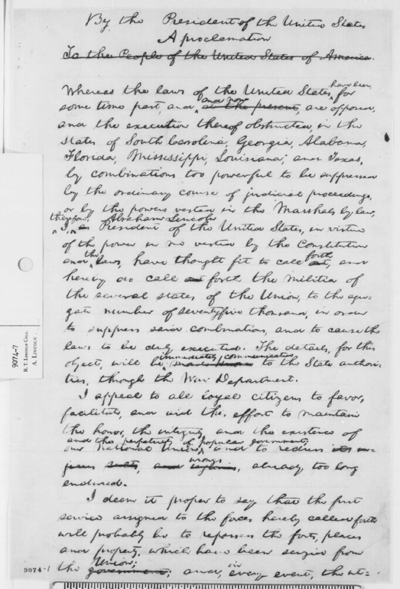 By the President of the United States
A proclamation
To the People of the United States of America.
Whereas the laws of the United States, have been for
some time past, and and now at the present, are opposed,
and the execution thereof obstructed, in the
States of South Carolina, Georgia, Alabama,
Florida, Mississippi, Louisiana, and Texas,
by combinations too powerful to be suppressed
by the ordinary course of judicial proceedings,
or by the powers vested in the Marshals by law,
therefore, Abraham Lincoln
I, President of the United States, in virtue
of the power in me vested by the Constitution
and the laws, have thought fit to call forth, and
hereby do call forth the militia of
the several states of the Union, to the aggre-
gate number of seventyfive thousand, in order
to suppress said combinations, and to cause the
laws to be duly executed. The details, for this
object, will be immediately communicated
to the State authori
ties, though the War Department.
I appeal to all loyal citizens to favor,
facilitate, and aid the, effort to maintain
the honor, the integrity, and the existence of
and the perpetuity of popular government;
our National Union, and to redress
wrongs
already too long
endured.
I deem it proper to say that the first
service assigned to the forces hereby called forth
will probably be to repossess the forts, places
and property, which have been seized from
the Union; government; and, in every event, the ut-
9074-7
R. T. LINCOLN COLL.
A. LINCOLN
9074-1